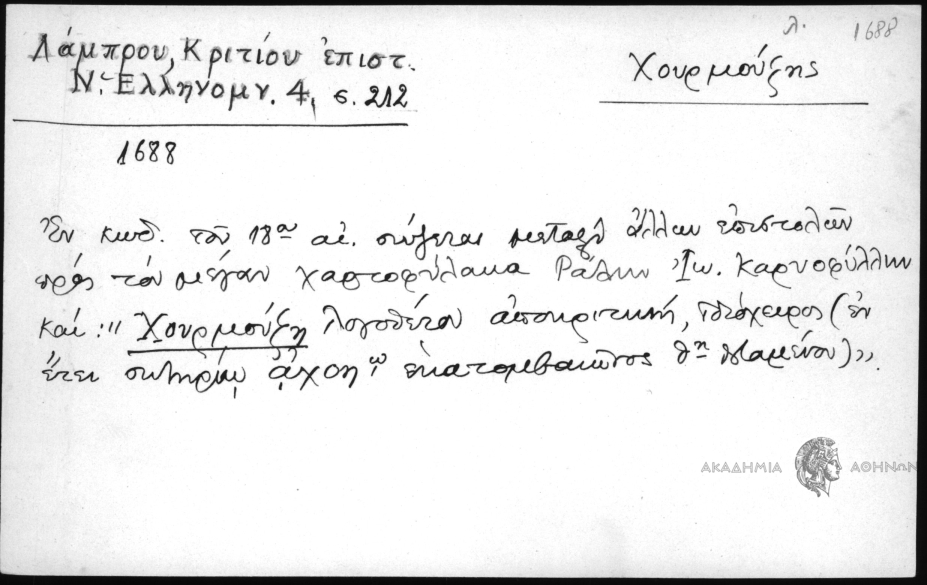 λ. 1688
Λάμπρου, Κριτίου ἐπιστ.
Ν. Ἑλληνομν. 4, σ. 212
Χουρμούζης
1688
Ἐν κωδ. τοῦ 18ου αἰ. σώζεται μεταξὺ ἄλλων ἐπιστολῶν
πρὸς τὸν μέγαν χαρτοφύλακα Ράλην Ἰω. Καρυοφύλλην
καὶ: "Χουρμούζη λογοθέτου ἀποκριτική, ἰδιόχειρος (ἐν
ἔτει σωτηρίῳ ͵αχπηῳ ἑκατομβαιῶνος θῃ ἱσταμένου)".
ΑΚΑΔΗΜΙΑ ΑΘΗΝΩΝ